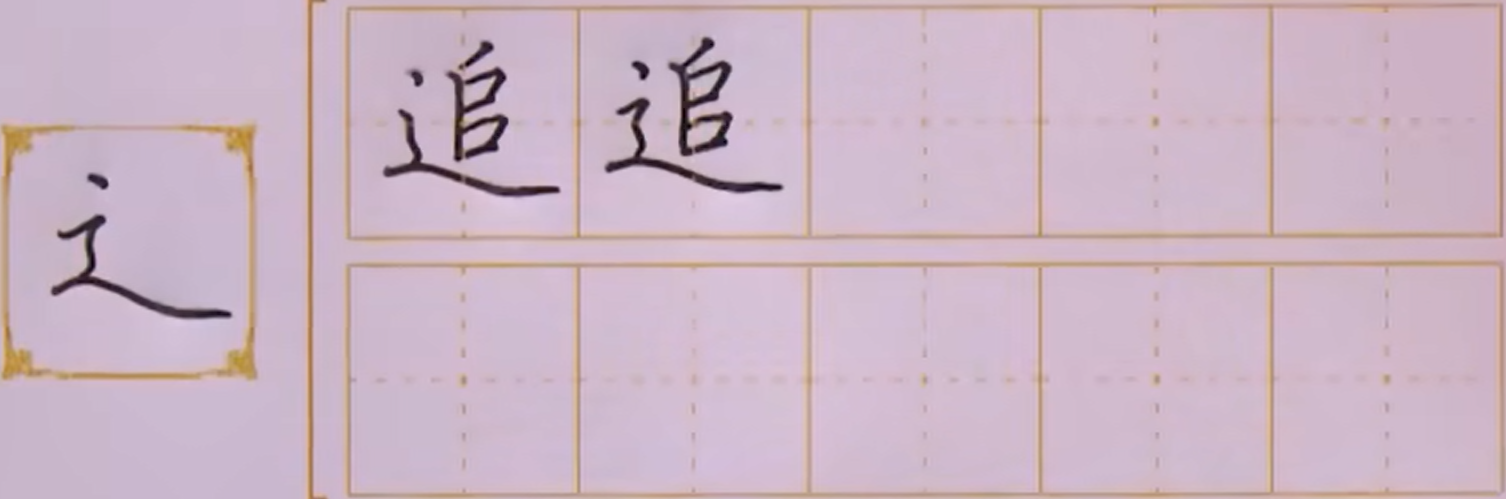 辶
追追